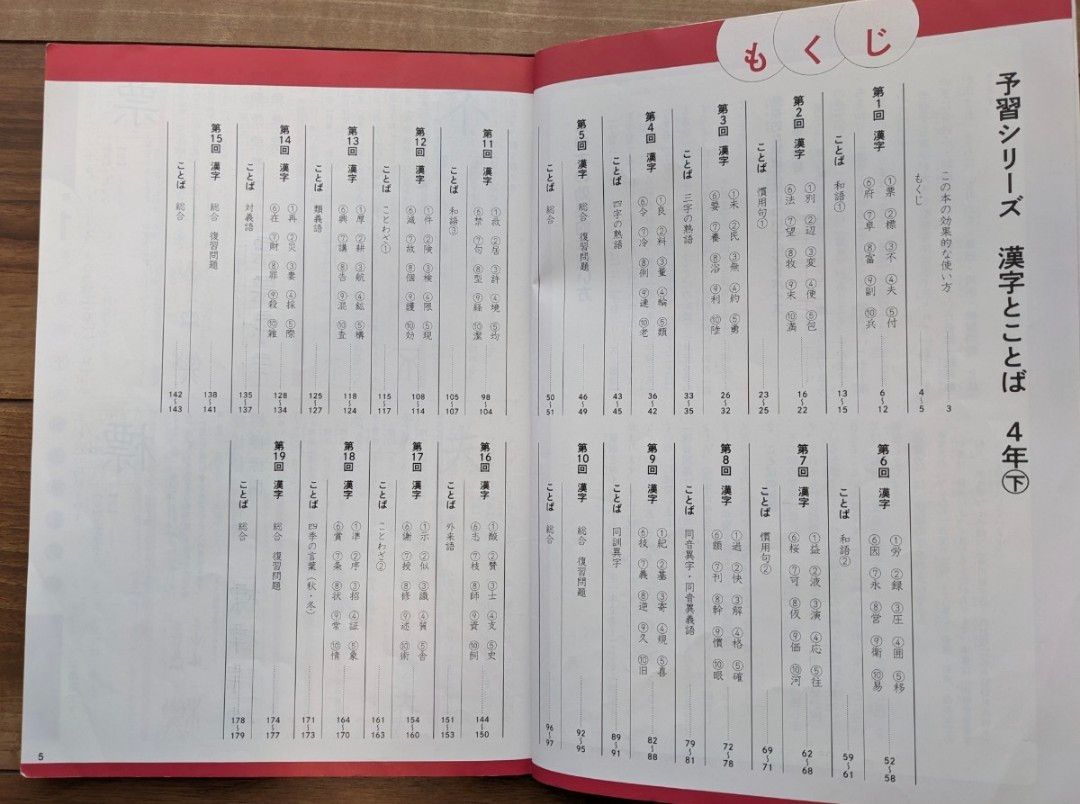 もくじ
予習シリーズ 漢字とことば 4年下
この本の効果的な使い方 3
もくじ 4〜5
第1回 漢字 ①票 ②標 ③不 ④夫 ⑤付 ⑥府 ⑦卓 ⑧富 ⑨副 ⑩兵 6〜12
ことば 和語① 13〜15
第2回 漢字 ①別 ②辺 ③変 ④便 ⑤包 ⑥法 ⑦望 ⑧牧 ⑨末 ⑩満 16〜22
ことば 慣用句① 23〜25
第3回 漢字 ①未 ②民 ③無 ④約 ⑤勇 ⑥要 ⑦養 ⑧浴 ⑨利 ⑩陸 26〜32
ことば 三字の熟語 33〜35
第4回 漢字 ①良 ②料 ③量 ④輪 ⑤類 ⑥令 ⑦冷 ⑧例 ⑨連 ⑩老 36〜42
ことば 四字の熟語 43〜45
第5回 漢字 総合 復習問題 46〜49
ことば 総合 50〜51
第6回 漢字 ①労 ②録 ③圧 ④囲 ⑤移 ⑥因 ⑦永 ⑧営 ⑨衛 ⑩易 52〜58
ことば 和語② 59〜61
第7回 漢字 ①益 ②液 ③演 ④応 ⑤往 ⑥桜 ⑦可 ⑧仮 ⑨価 ⑩河 62〜68
ことば 慣用句② 69〜71
第8回 漢字 ①過 ②快 ③解 ④格 ⑤確 ⑥額 ⑦刊 ⑧幹 ⑨慣 ⑩眼 72〜78
ことば 同音異字・同音異義語 79〜81
第9回 漢字 ①紀 ②基 ③寄 ④規 ⑤喜 ⑥技 ⑦義 ⑧逆 ⑨久 ⑩旧 82〜88
ことば 同訓異字 89〜91
第10回 漢字 総合 復習問題 92〜95
ことば 総合 96〜97
第11回 漢字 ①救 ②居 ③許 ④境 ⑤均 ⑥禁 ⑦句 ⑧型 ⑨経 ⑩潔 98〜104
ことば 和語③ 105〜107
第12回 漢字 ①件 ②険 ③検 ④限 ⑤現 ⑥減 ⑦故 ⑧個 ⑨護 ⑩効 108〜114
ことば ことわざ① 115〜117
第13回 漢字 ①厚 ②耕 ③航 ④鉱 ⑤構 ⑥興 ⑦講 ⑧告 ⑨混 ⑩査 118〜124
ことば 類義語 125〜127
第14回 漢字 ①再 ②災 ③妻 ④採 ⑤際 ⑥在 ⑦財 ⑧罪 ⑨殺 ⑩雑 128〜134
ことば 対義語 135〜137
第15回 漢字 総合 復習問題 138〜141
ことば 総合 142〜143
第16回 漢字 ①酸 ②賛 ③士 ④支 ⑤史 ⑥志 ⑦枝 ⑧師 ⑨資 ⑩飼 144〜150
ことば 外来語 151〜153
第17回 漢字 ①示 ②似 ③識 ④質 ⑤舎 ⑥謝 ⑦授 ⑧修 ⑨述 ⑩術 154〜160
ことば ことわざ② 161〜163
第18回 漢字 ①準 ②序 ③招 ④証 ⑤象 ⑥賞 ⑦条 ⑧状 ⑨常 ⑩情 164〜170
ことば 四季の言葉(秋・冬) 171〜173
第19回 漢字 総合 復習問題 174〜177
ことば 総合 178〜179
5